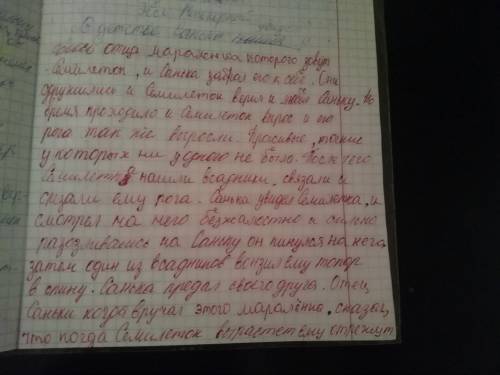 В детстве Санька
своего отца маралёнка которого зовут
Семилеток, и Санька забрал его к себе. Они
сдружились и Семилеток верил и любил Саньку. Но
время проходило и Семилеток вырос и его
рога так же выросли. Красивые, тонкие
у которых ни у одного не было. После чего
Семилетка нашли всадники, связали и
срезали ему рога. Санька увидел Семилетка, и
смотрел на него безжалостно и сильно
разозлившись на Саньку он кинулся на него
затем один из всадников вонзил ему топор
в спину. Санька предал своего друга. Отец
Саньки когда вручал этого маралёнка, сказал,
что когда Семилеток вырастет ему отрежут